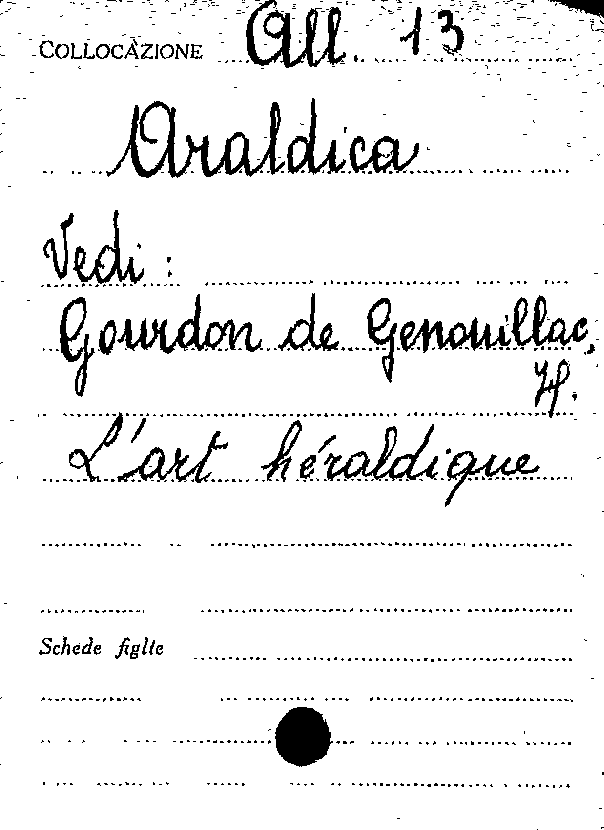 COLLOCAZIONE All. 13
Araldica
Vedi :
Gourdon de Genouillac,
H.
L'art héraldique
Schede figlie